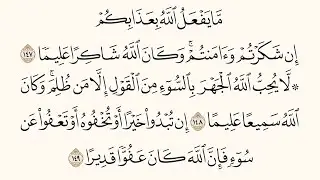 مَّا يَفْعَلُ ٱللَّهُ بِعَذَابِكُمْ
إِن شَكَرْتُمْ وَءَامَنتُمْ ۚ وَكَانَ ٱللَّهُ شَاكِرًا عَلِيمًا ١٤٧
۞ لَّا يُحِبُّ ٱللَّهُ ٱلْجَهْرَ بِٱلسُّوٓءِ مِنَ ٱلْقَوْلِ إِلَّا مَن ظُلِمَ ۚ وَكَانَ
ٱللَّهُ سَمِيعًا عَلِيمًا ١٤٨ إِن تُبْدُوا۟ خَيْرًا أَوْ تُخْفُوهُ أَوْ تَعْفُوا۟ عَن
سُوٓءٍ فَإِنَّ ٱللَّهَ كَانَ عَفُوًّا قَدِيرًا ١٤٩